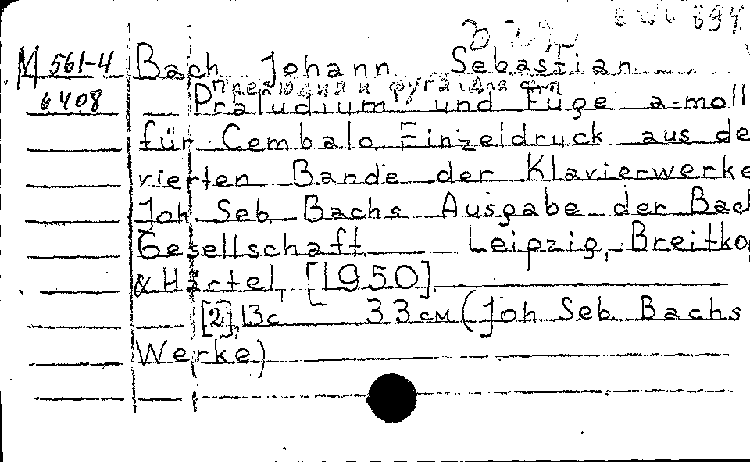 M 561-4 Bach Johann Sebastian
Прелюдия и фуга для фп
6408 Präludium und Fuge a-moll
für Cembalo Einzeldruck aus de
vierten Bande der Klavierwerke
Joh Seb Bachs Ausgabe der Bach
Gesellschaft Leipzig, Breitkop
& Härtel, [1950]
[2], 13 с 33 см (Joh Seb Bachs
Werke)